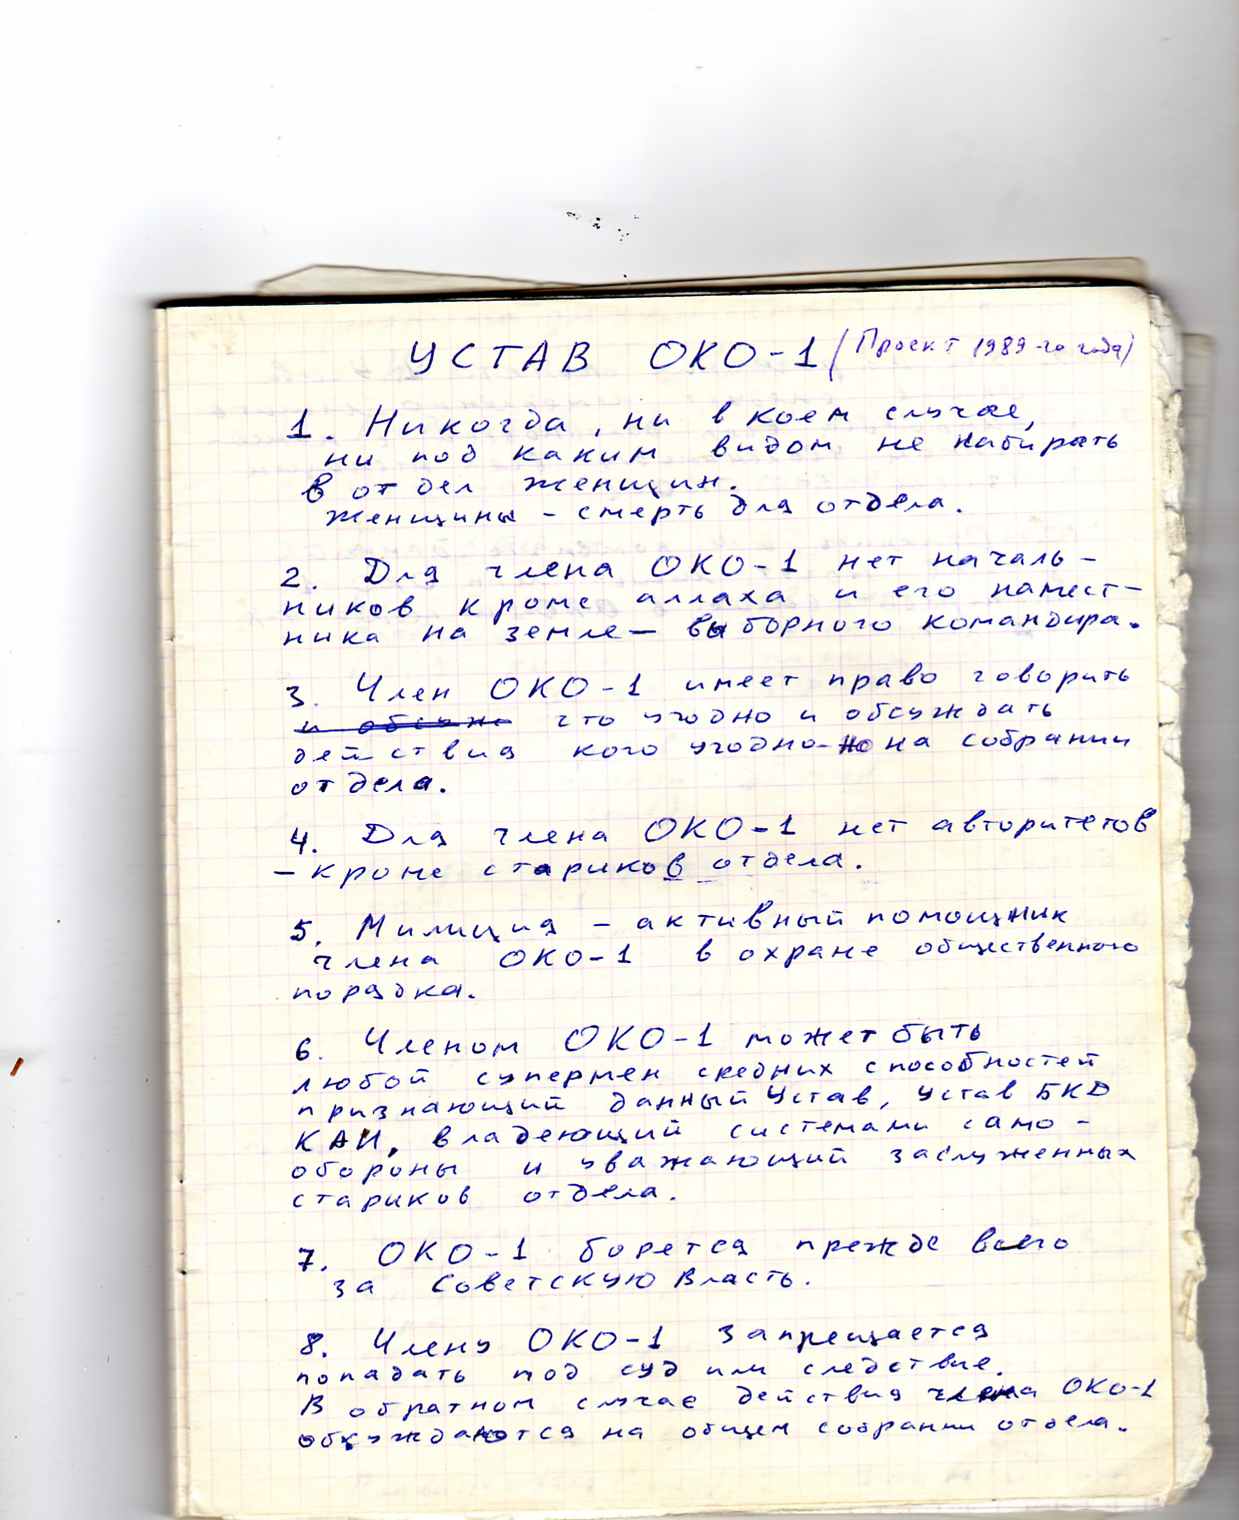 УСТАВ ОКО-1 (Проект 1989-го года)
1. Никогда, ни в коем случае,
ни под каким видом не набирать
в отдел женщин.
Женщины - смерть для отдела.
2. Для члена ОКО-1 нет началь-
ников кроме аллаха и его намест-
ника на земле - выборного командира.
3. Член ОКО-1 имеет право говорить
и обсуж что угодно и обсуждать
действия кого угодно - но на собрании
отдела.
4. Для члена ОКО-1 нет авторитетов
- кроме стариков отдела.
5. Милиция - активный помощник
члена ОКО-1 в охране общественного
порядка.
6. Членом ОКО-1 может быть
любой супермен средних способностей
признающий данный Устав, Устав БКД
КАИ, владеющий системами само-
обороны и уважающий заслуженных
стариков отдела.
7. ОКО-1 борется прежде всего
за Советскую Власть.
8. Члену ОКО-1 запрещается
попадать под суд или следствие.
В обратном случае действия члена ОКО-1
обсуждаются на общем собрании отдела.